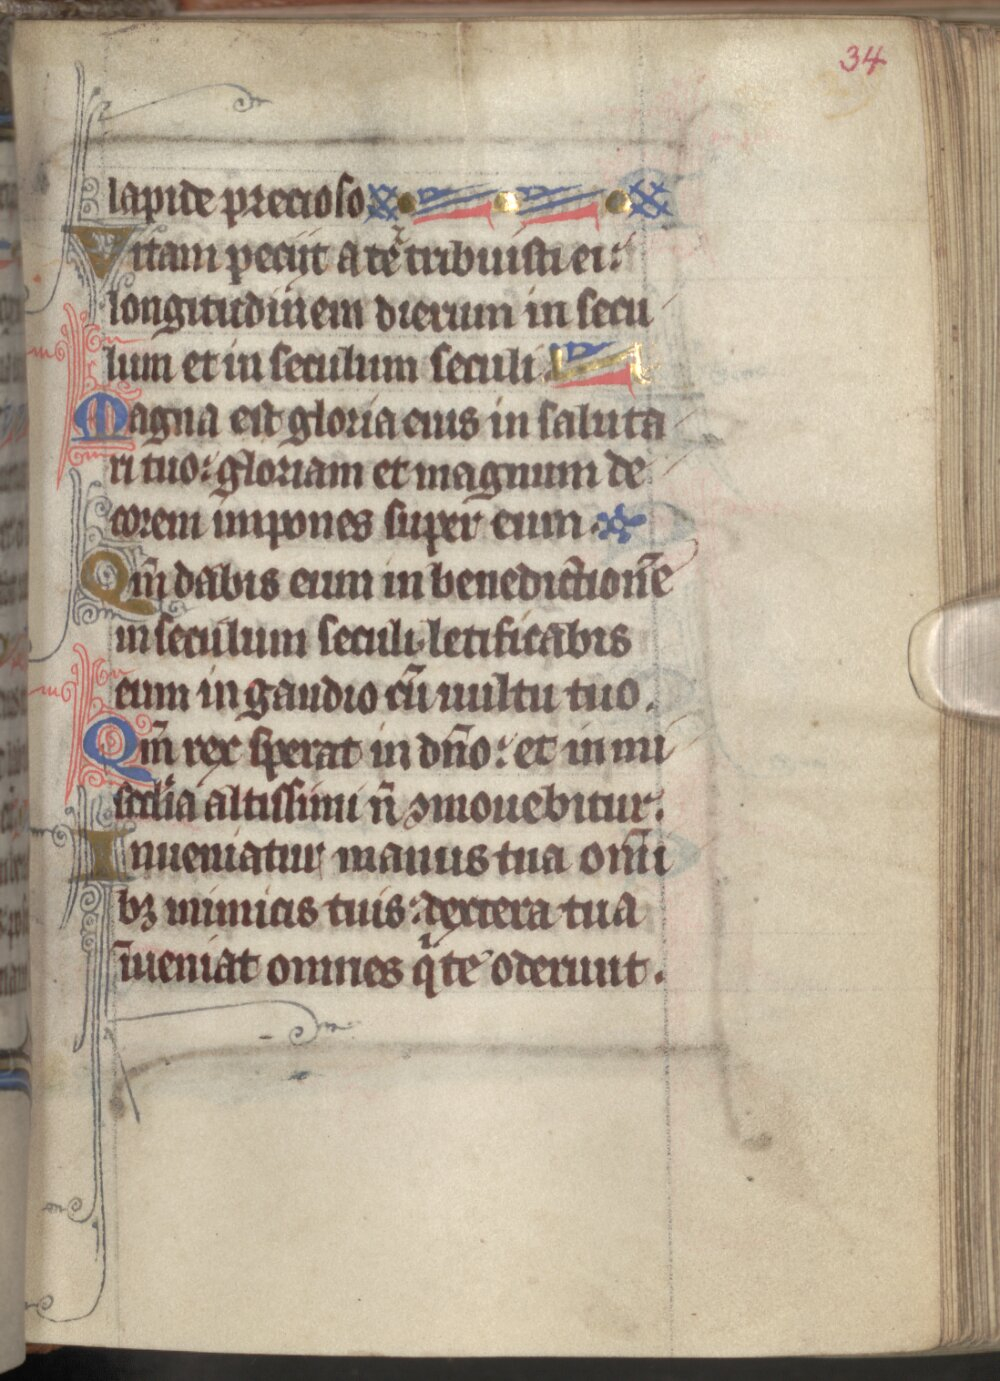 34
lapide precioso
Vitam peciit a te ⁊ tribuisti ei:
longitudinem dierum in secu
lum et in seculum seculi.
Magna est gloria eius in saluta
ri tuo: gloriam et magnum de
corem impones super eum.
Qm̄ dabis eum in benedictionē
in seculum seculi letificabis
eum in gaudio cū uultu tuo.
Qm̄ rex sperat in dn̄o: et in mi
sc̄dia altissimi n̄ ꝯmouebitur.
Inueniatur manus tua om̄i
bꝫ inimicis tuis: dextera tua
īueniat omnes q̄ te oderunt.